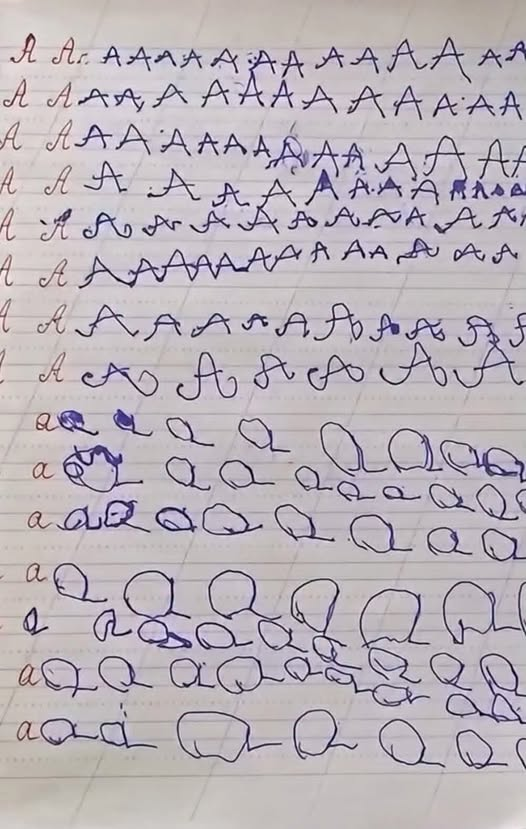 A A A A A A A A A A A A A A A
A A A A A A A A A A A A A A
A A A A A A A A A A A A A A A
A A A A A A A A A A A A A A A
A A A A A A A A A A A A A
A A A A A A A A A A A A A A A
A A A A A A A A A A A A
A A A A A A A A
a a a a a a a a a
a a a a a a a a a
a a a a a a a a a
a a a a a a a a
a a a a a a a a a
a a a a a a a a a a
a a a a a a a a